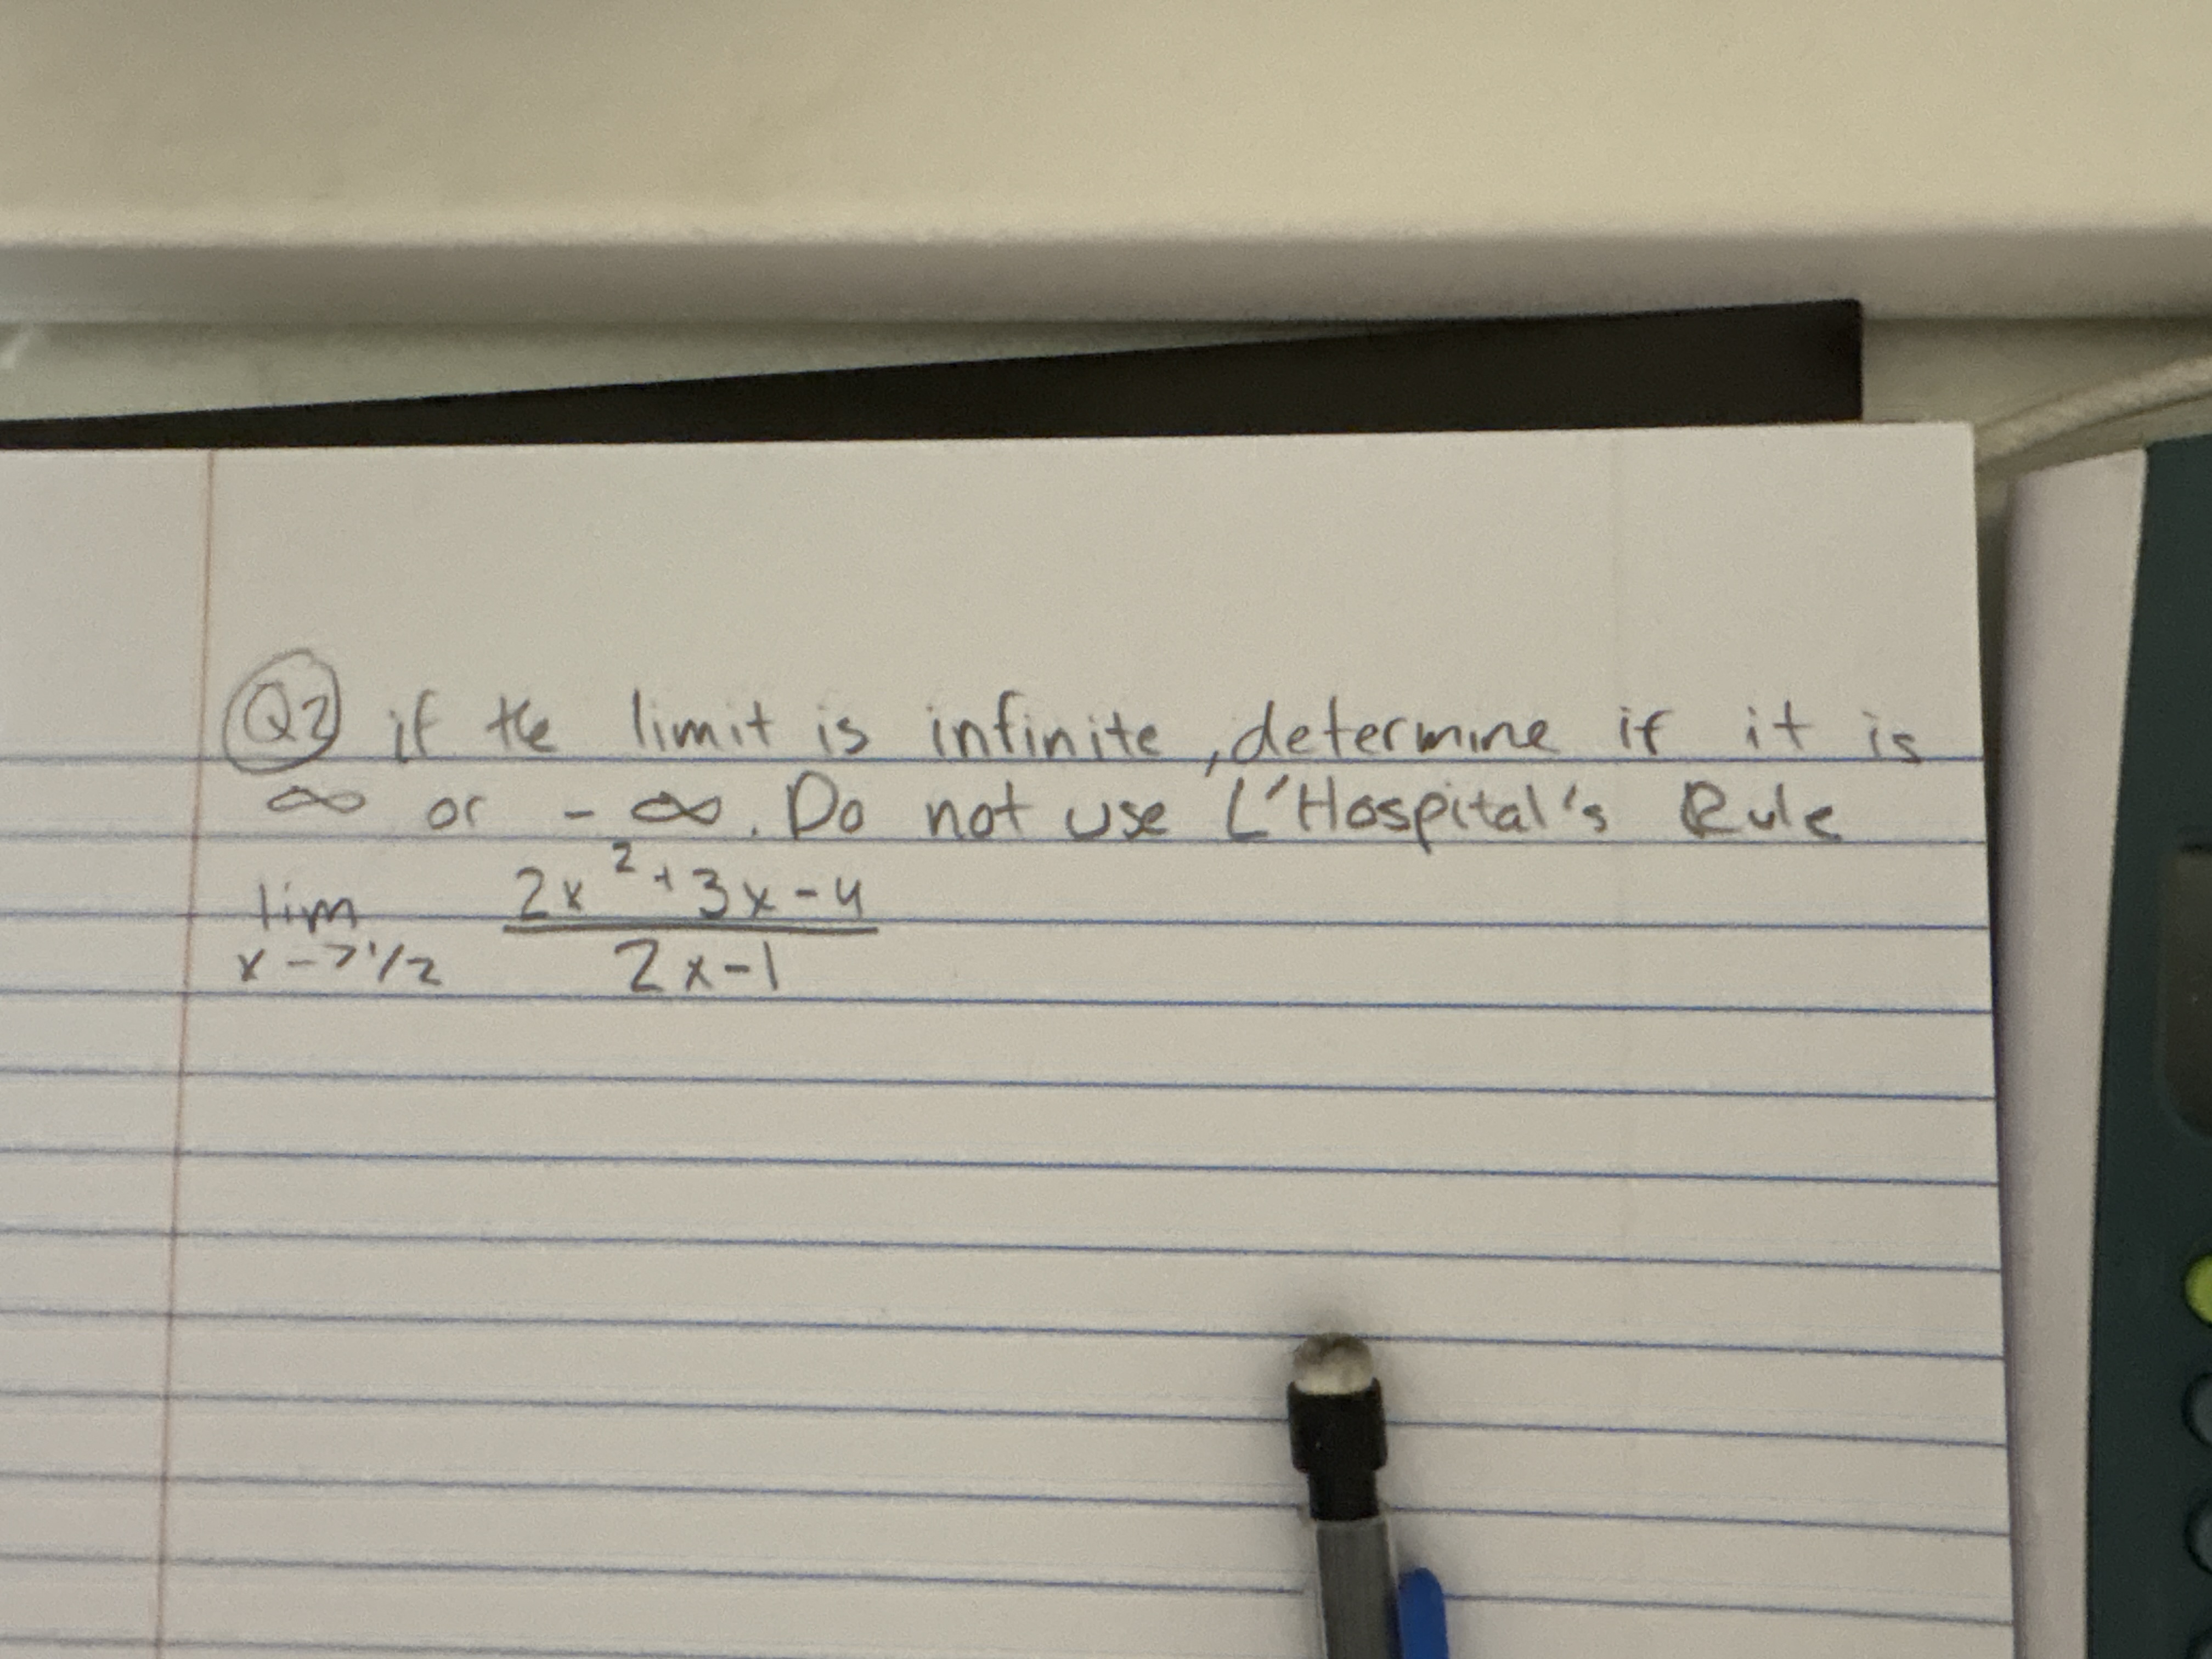 Q2 if the limit is infinite, determine if it is
∞ or -∞. Do not use L'Hospital's Rule
lim x->1/2 (2x²+3x-4)/(2x-1)